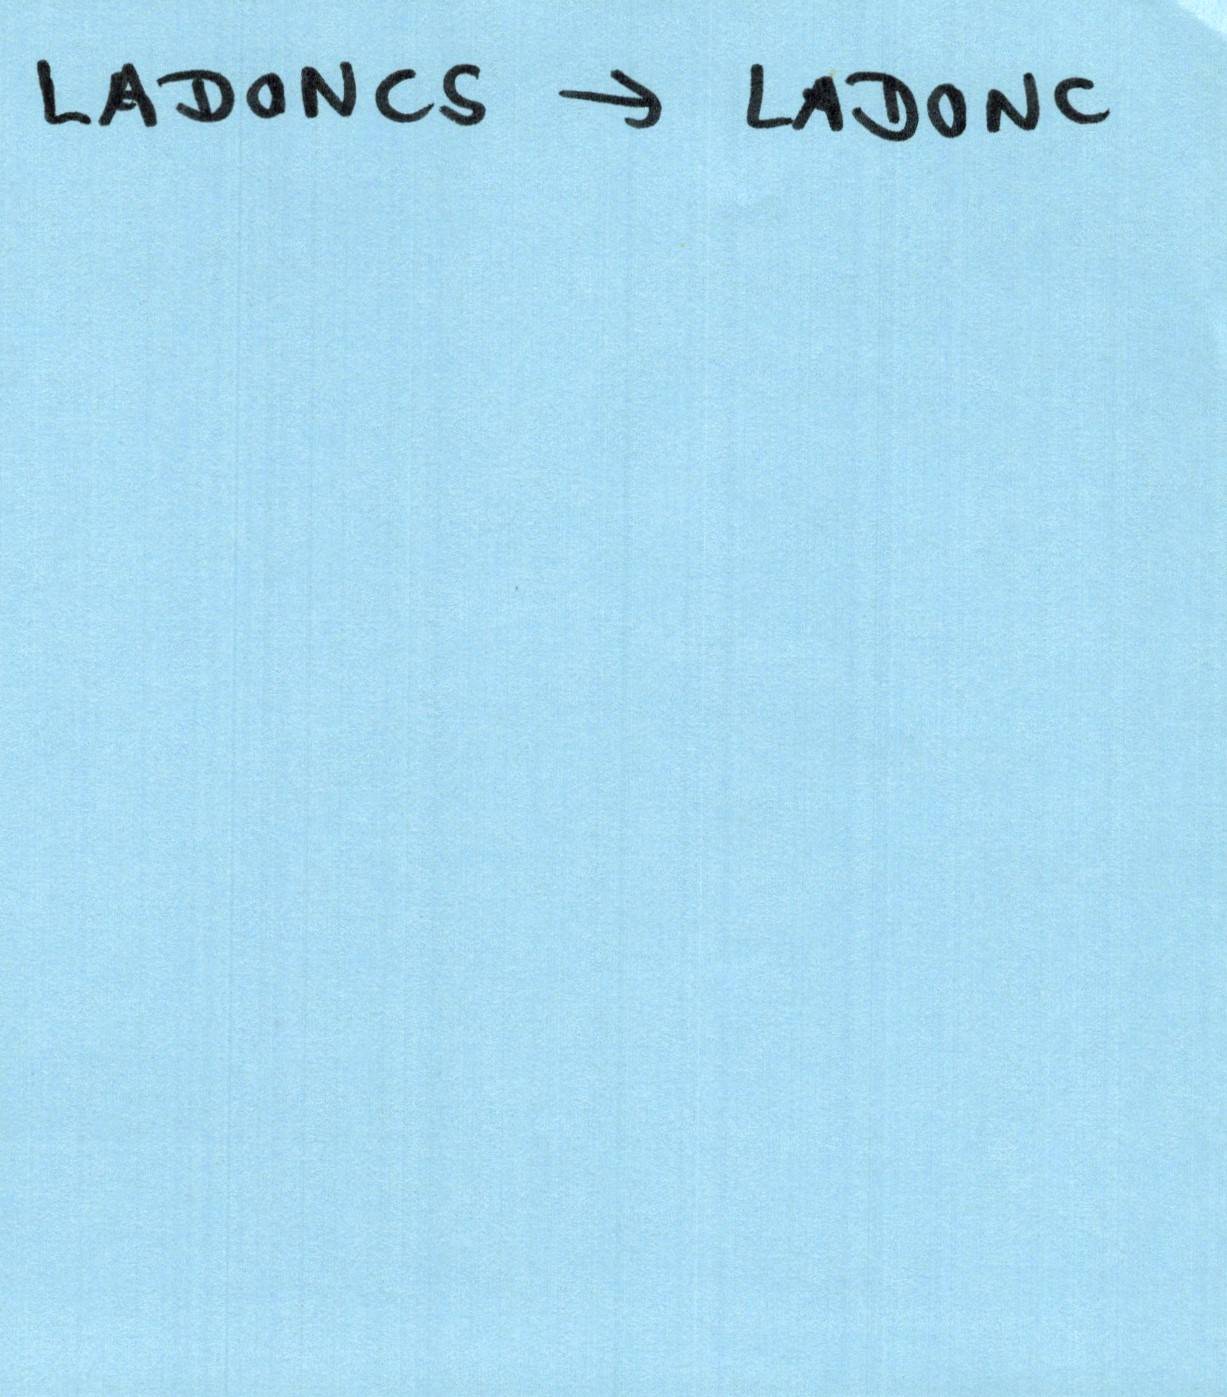 LADONCS → LADONC